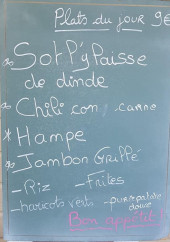 Plats du jour 9€
Sot l'y laisse
de dinde
Chili con carne
Hampe
Jambon Grillé
- Riz - Frites
- haricots verts - purée patate
douce
Bon appétit !